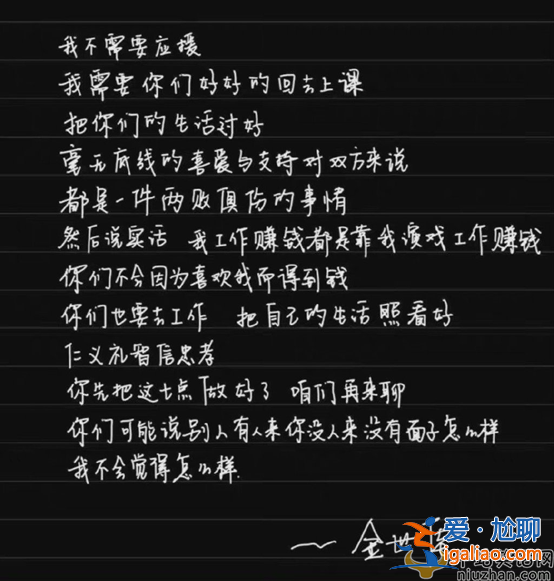 我不需要应援
我需要你们好好的回去上课
把你们的生活过好
毫无底线的喜爱与支持对双方来说
都是一件两败俱伤的事情
然后说实话 我工作赚钱都是靠我演戏工作赚钱
你们不会因为喜欢我而得到钱
你们也要去工作 把自己的生活照看好
仁义礼智信忠孝
你先把这七点做好了 咱们再来聊
你们可能说别人有人来你没人来没有面子怎么样
我不会觉得怎么样.
~ 金世
爱·尬聊
igaliao.com
niuzhan.com